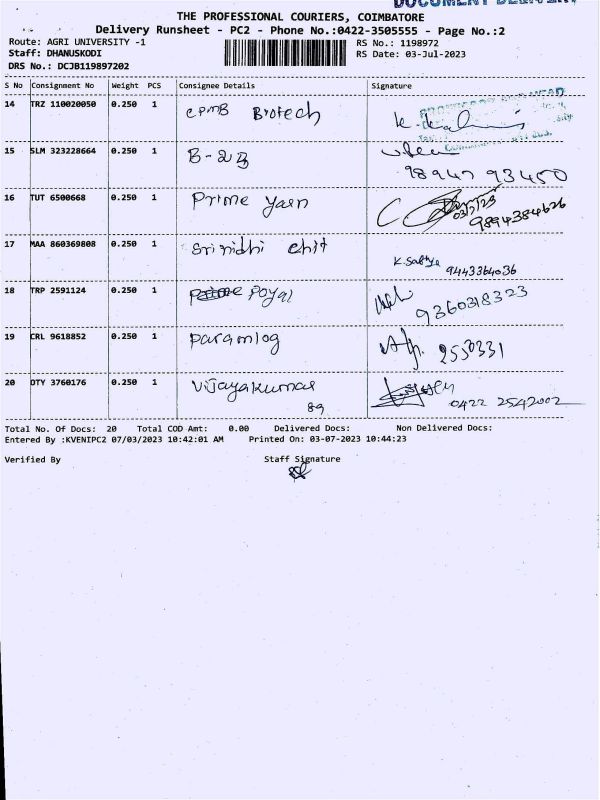 DOCUMENT DELIVERY
THE PROFESSIONAL COURIERS, COIMBATORE
Delivery Runsheet - PC2 - Phone No.:0422-3505555 - Page No.:2
Route: AGRI UNIVERSITY -1 RS No.: 1198972
Staff: DHANUSKODI RS Date: 03-Jul-2023
DRS No.: DCJB119897202
S No Consignment No Weight PCS Consignee Details Signature
14 TRZ 110020050 0.250 1 CPMB Biotech
15 SLM 323228664 0.250 1 B-23
98947 93450
16 TUT 6500668 0.250 1 Prime Yarn 03/7/23
9894384626
17 MAA 860369808 0.250 1 Sri nidhi chit K. Sathya 9443364036
18 TRP 2591124 0.250 1 Poyal 9360318323
19 CRL 9618852 0.250 1 paramlog 2550331
20 OTY 3760176 0.250 1 Vijayakumar
89 0422 2542002
Total No. Of Docs: 20 Total COD Amt: 0.00 Delivered Docs: Non Delivered Docs:
Entered By :KVENIPC2 07/03/2023 10:42:01 AM Printed On: 03-07-2023 10:44:23
Verified By Staff Signature